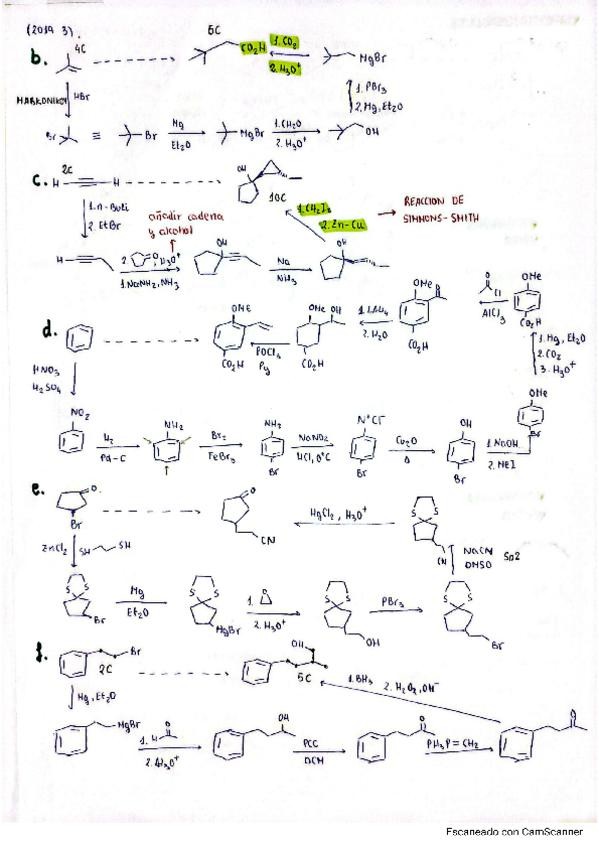 (2019 3)
b. 4C 5C CO₂H 1. CO₂ 2. H₃O⁺ MgBr
MARKONIKOV HBr 1. PBr₃ 2. Mg, Et₂O
Br ≡ Br Mg Et₂O MgBr 1. CH₂O 2. H₃O⁺ OH
c. 2C H H OH 10C 1. CH₂I₂ 2. Zn-Cu REACCION DE SIMMONS-SMITH
1. n-BuLi 2. EtBr añadir cadena y alcohol
H 2. O, H₃O⁺ 1. NaNH₂, NH₃ OH Na NH₃ OH
d. OMe CO₂H OMe OH CO₂H POCl₃ Py 2. H₂O OMe O CO₂H O Cl AlCl₃ OMe CO₂H
HNO₃ H₂SO₄ 1. Mg, Et₂O 2. CO₂ 3. H₃O⁺
NO₂ H₂ Pd-C NH₂ Br₂ FeBr₃ NH₂ Br NaNO₂ HCl, 0°C N⁺Cl⁻ Br Cu₂O Δ OH Br 1. NaOH 2. MeI OMe Br
e. O Br O CN HgCl₂, H₃O⁺ S S CN
ZnCl₂ SH SH NaCN DMSO SN2
S S Br Mg Et₂O S S MgBr 1. O 2. H₃O⁺ S S OH PBr₃ S S Br
f. Br 2C OH 5C 1. BH₃ 2. H₂O₂, OH⁻
Mg, Et₂O
MgBr 1. H O 2. H₃O⁺ OH PCC DCM O PH₃P=CH₂
Escaneado con CamScanner